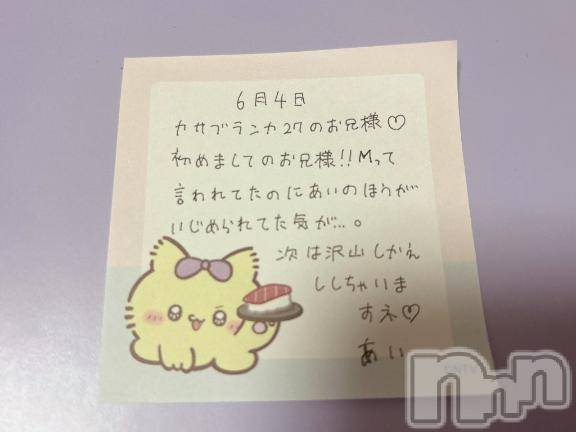 6月4日
カサブランカ27のお兄様♡
初めましてのお兄様!!Mって
言われてたのにあいのほうが
いじめられてた気が...。
次は沢山しかえ
ししちゃいま
すネ♡
あい
nnn